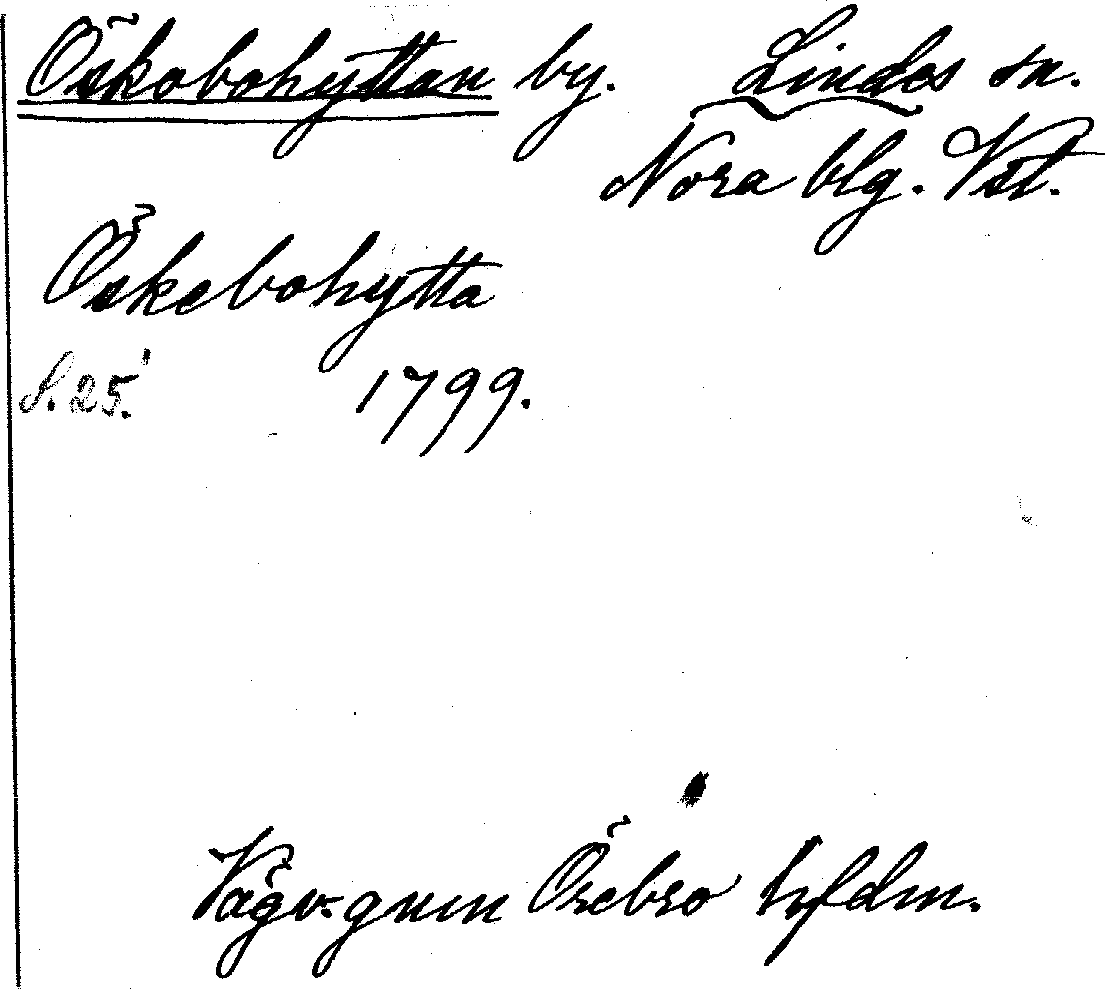 Öskobohyttan by. Lindes sn.
Nora blg. Vstl.
Öskebohytta
S. 25. 1799.
Vägv. gnm Örebro hfdm.